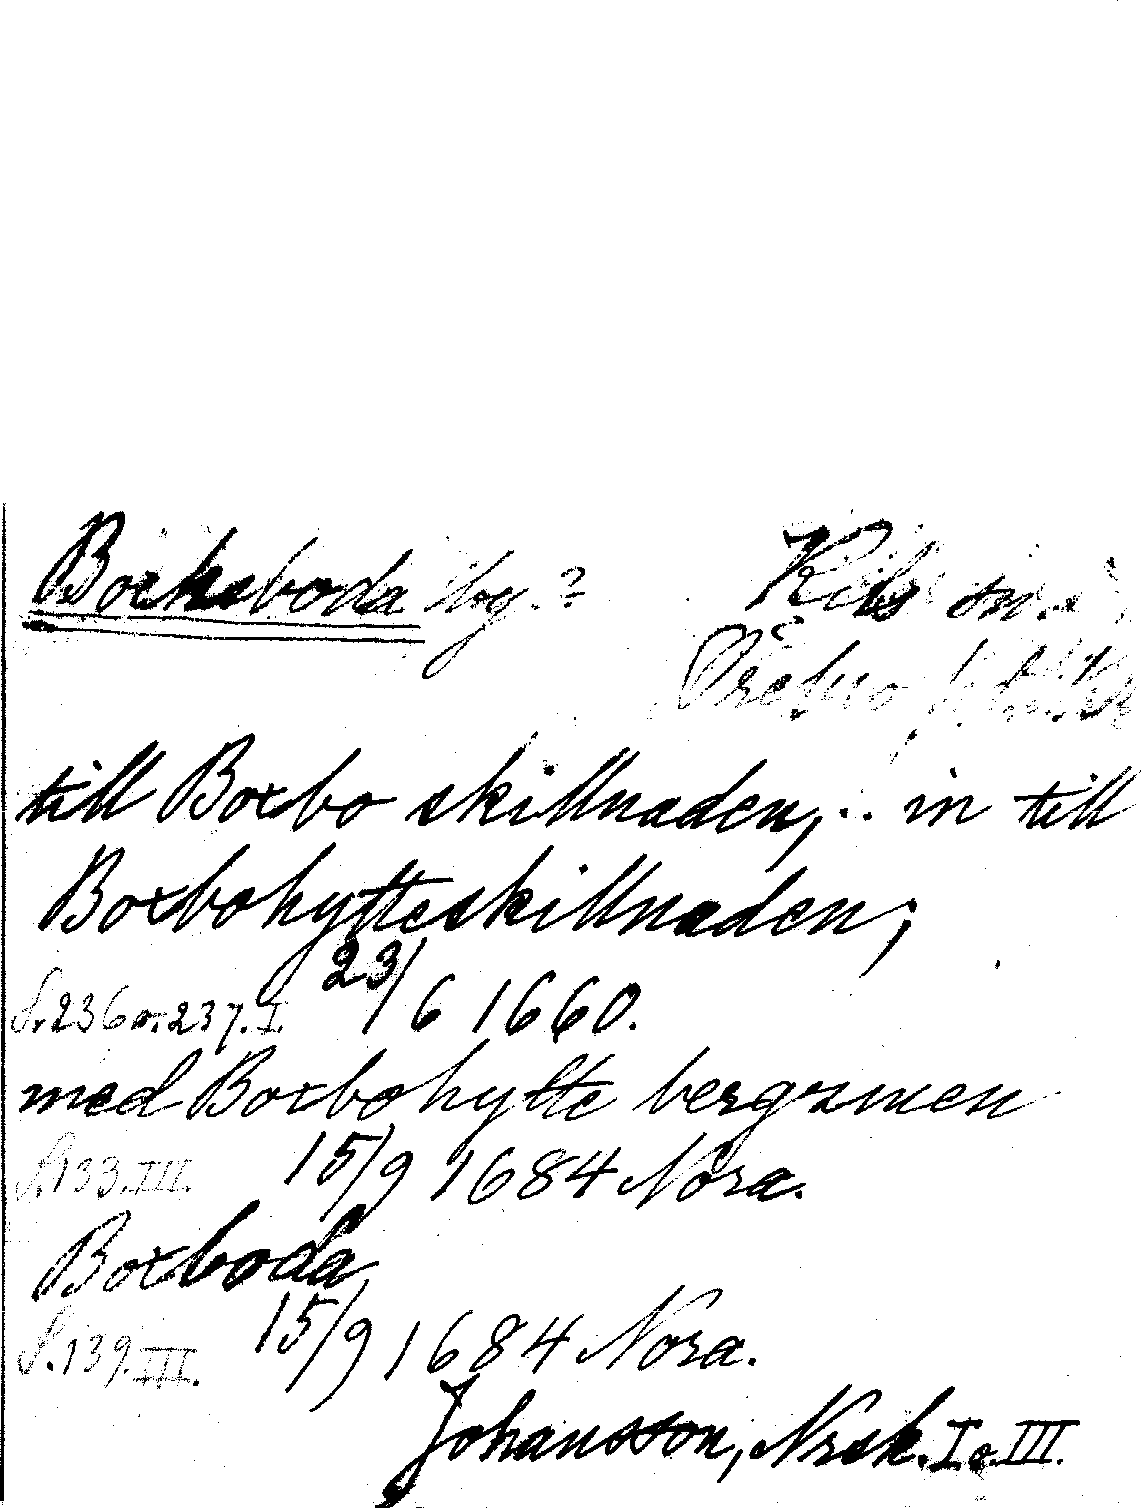 Bocksboda by?
Kils sn.
Örebro
till Boxbo skillnaden, .. in till
Boxbohytteskillnaden;
S. 236 o. 237. I. 23/6 1660.
med Boxbohytte bergzmen
S. 133. III. 15/9 1684 Nora.
Boxboda
S. 139. III. 15/9 1684 Nora.
Johansson, Nrsk. I o. III.